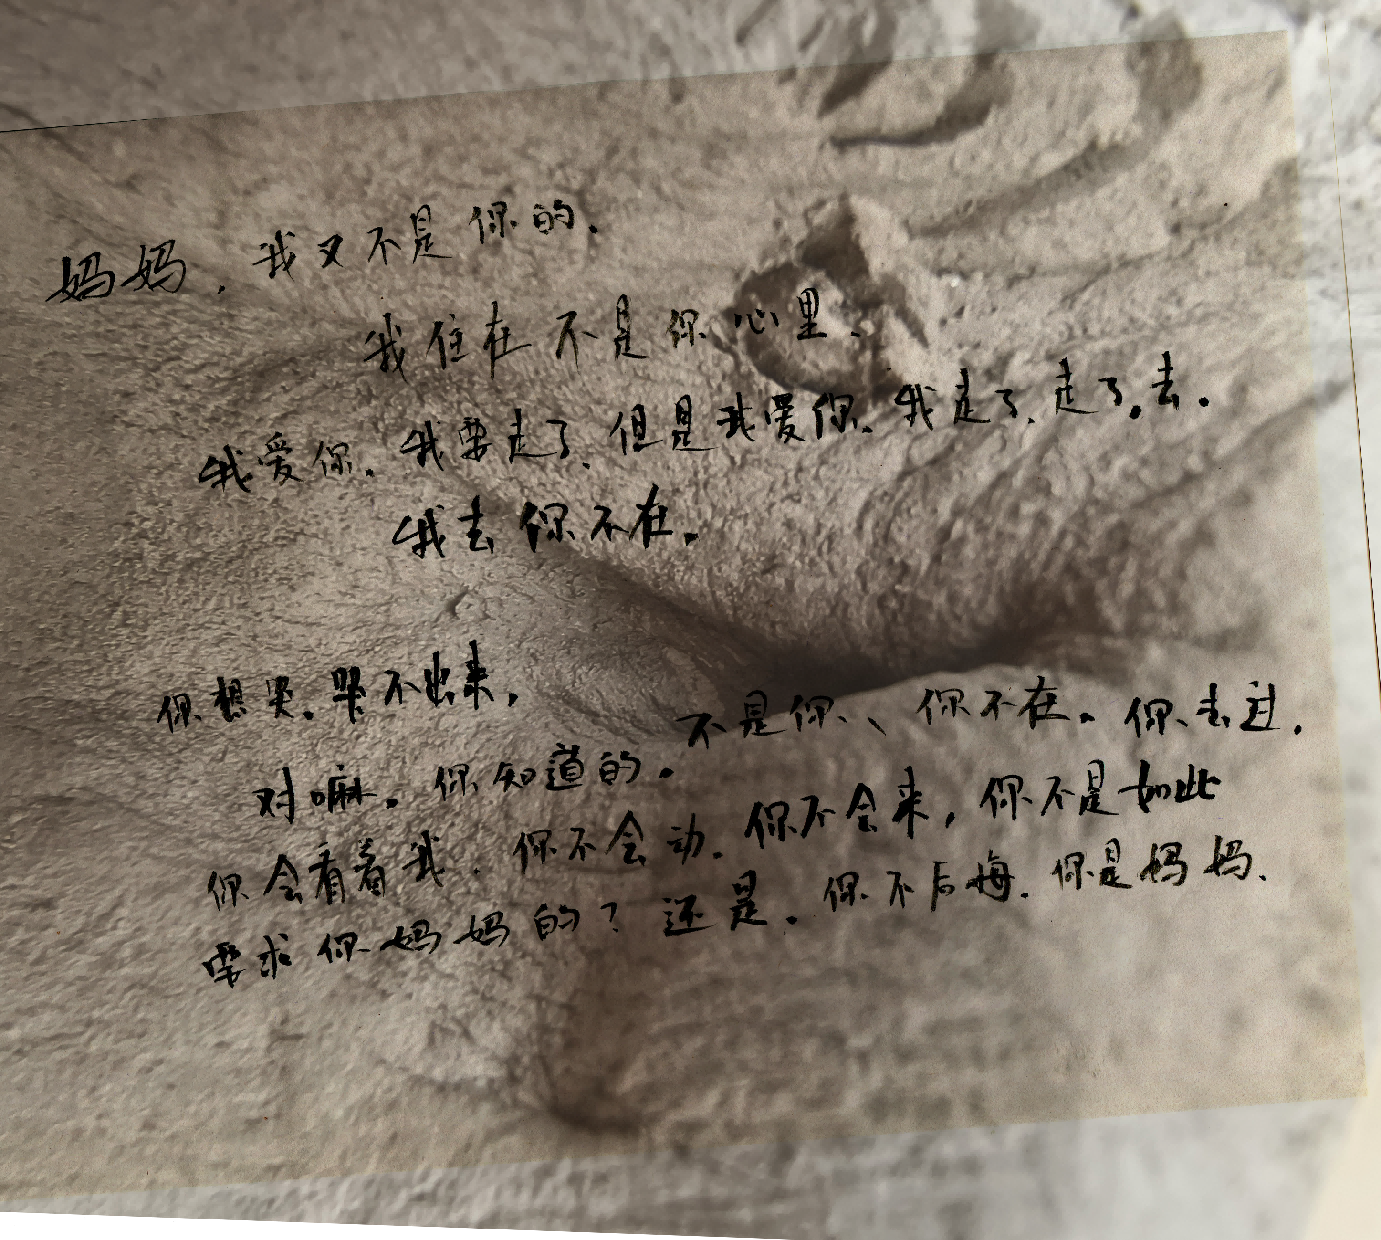 妈妈，我又不是你的.
我住在不是你心里、
我爱你。我要走了、但是我爱你。我走了、走了。去。
我去你不在。
你想哭。哭不出来，
不是你、、你不在。你去过.
对嘛。你知道的。
你会看着我. 你不会动. 你不会来，你不是如此
需求你妈妈的? 还是。你不后悔. 你是妈妈、